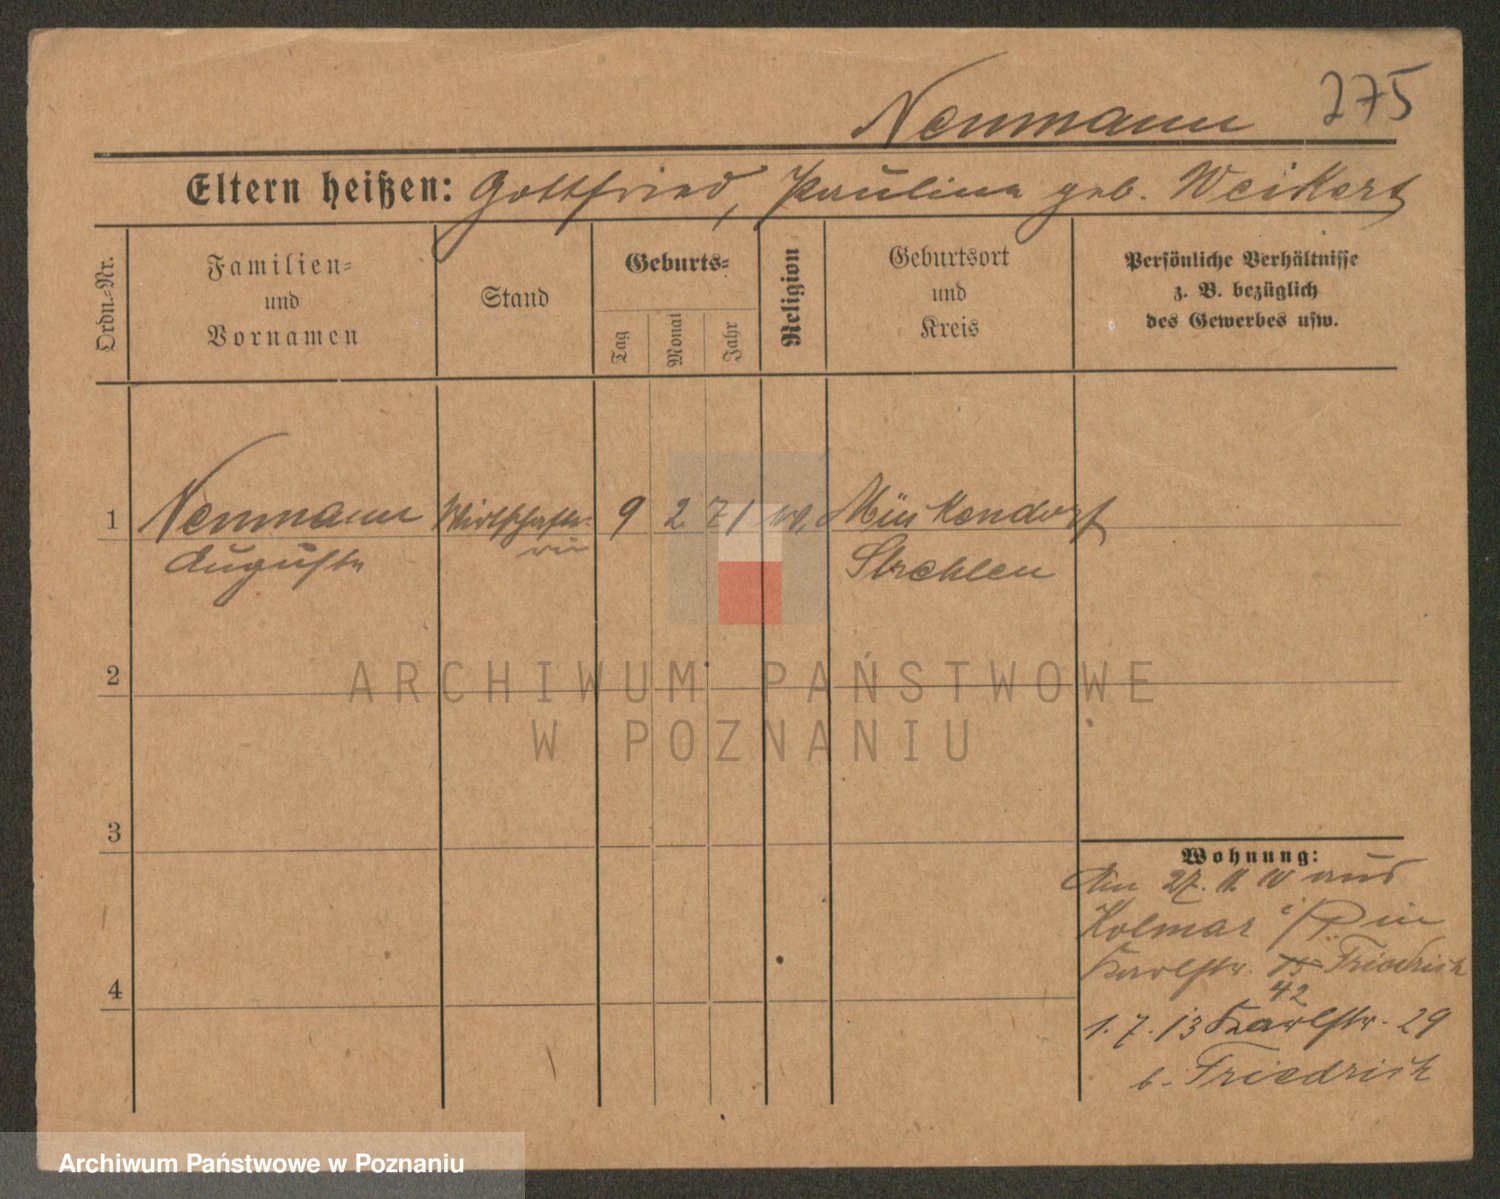 Neumann 275
Eltern heißen: Gottfried, Pauline geb. Weikert
Ordn.-Nr.
Familien-
und
Vornamen
Stand
Geburts-
Tag
Monat
Jahr
Religion
Geburtsort
und
Kreis
Persönliche Verhältnisse
z. B. bezüglich
des Gewerbes usw.
1 Neumann Wirtschafte- 9 2 71 Münkendorf
Auguste rin Strehlen
2
ARCHIWUM PAŃSTWOWE
W POZNANIU
3
Wohnung:
Am 27. 11. 10 aus
Kolmar i/P in
4
Karlstr. Friedrich
42
1. 7. 13 Karlstr. 29
b. Friedrich
Archiwum Państwowe w Poznaniu